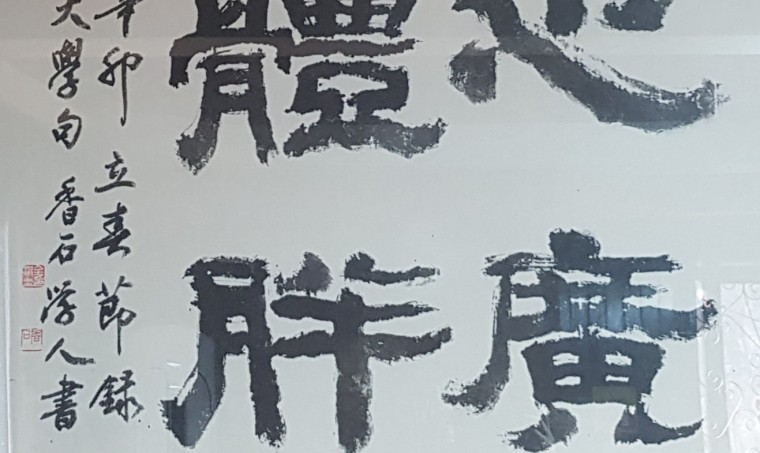 心廣
體胖
辛卯立春節錄
大學句 香石學人書